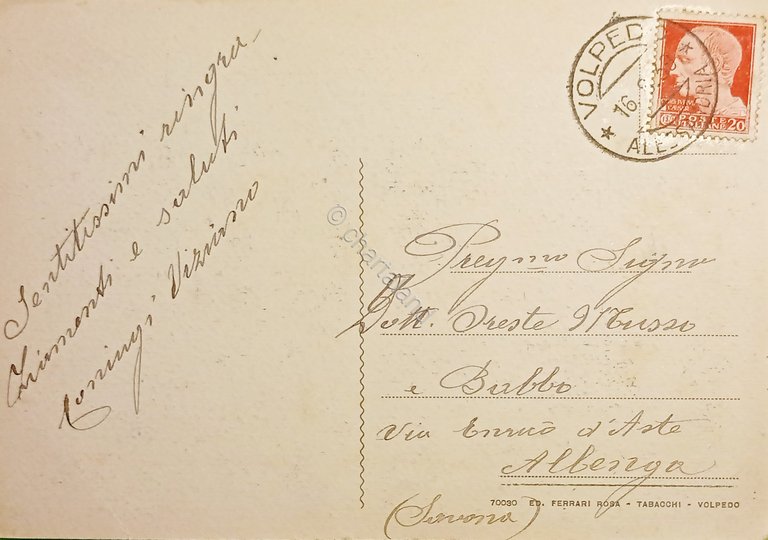 Sentitissimi ringra-
ziamenti e saluti
Coniugi Viziano
VOLPEDO
16
ALESSANDRIA
POSTE
ITALIANE 20
Preg.mo Signo
Dott. Oreste Musso
e Babbo
Via Enrico d'Aste
Albenga
(Savona)
70030 ED. FERRARI ROSA - TABACCHI - VOLPEDO